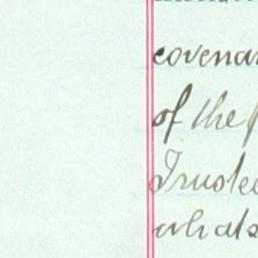 covenan
of the
Truste
whats